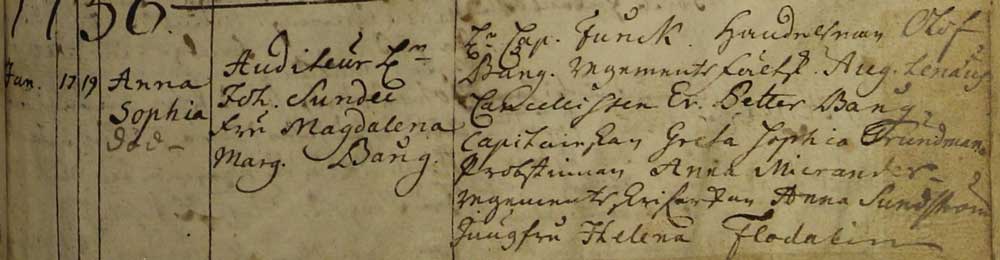 1736.
Jan. 17 19 Anna
Sophia
död
Auditeur H:n
Joh. Sundel
fru Magdalena
Marg. Bång.
H:n Cap. Funck. Handelsman Olof
Bång. regements fältsk. Aug. Lenæus
Cancellisten Er. Petter Bång.
Capitainskan Greta Sophia Trundman
Probstinnan Anna Micrander
regements skrifarskan Anna Sundström
Jungfru Helena Flodalin